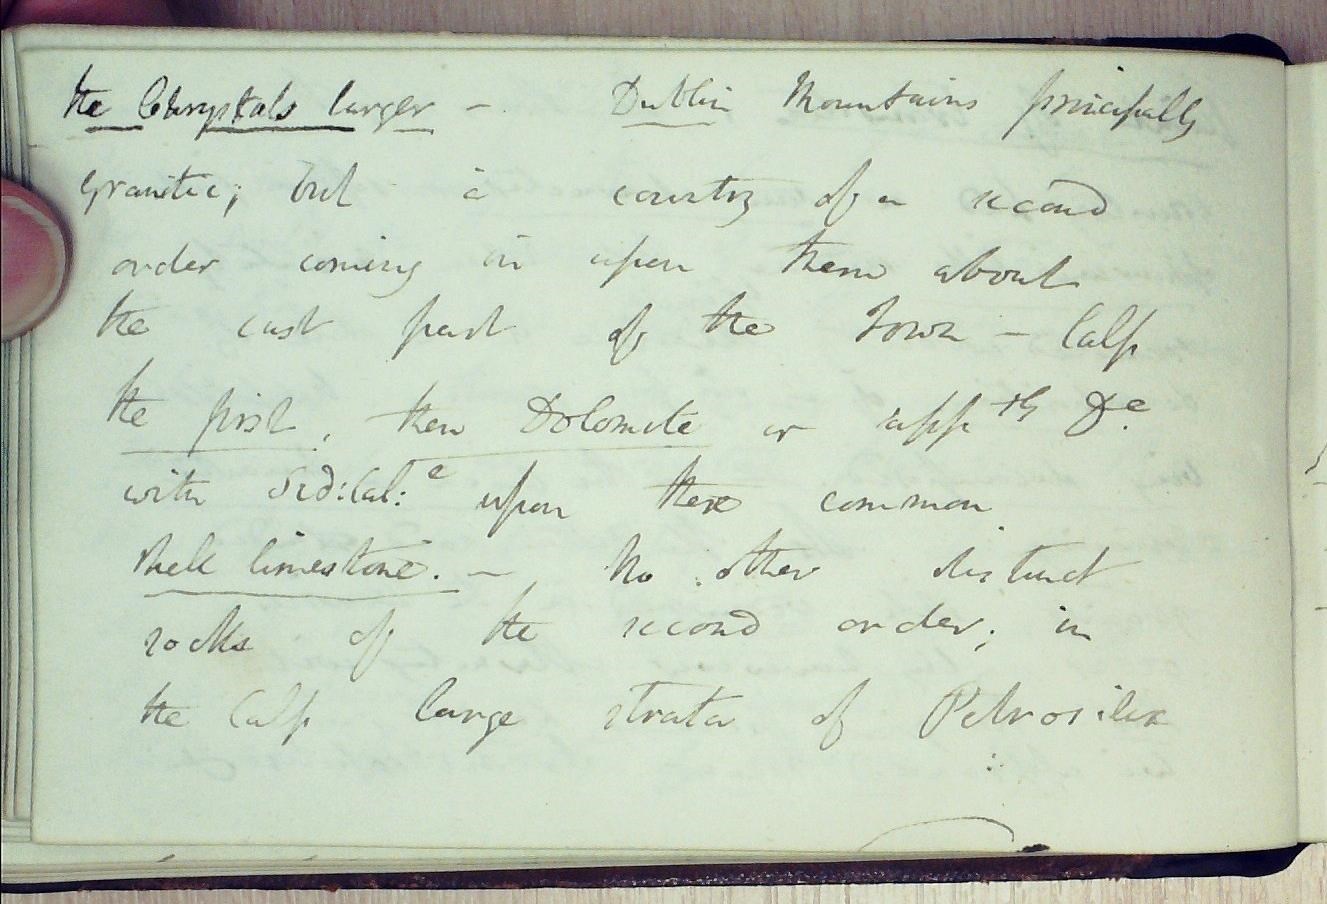 the Chrystals larger – Dublin Mountains principally
granitic; but a country of a second
order coming in upon them about
the east part of the Town – Calp
the first, then Dolomite or
with Sid: Cal: upon these common
shell limestone. – No other distinct
rocks of the second order; in
the Calp large strata of Petrosilex